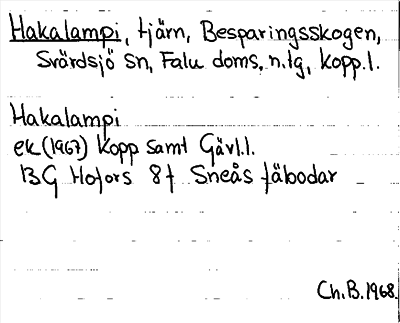 Hakalampi, tjärn, Besparingsskogen,
Svärdsjö sn, Falu doms. n.tg, Kopp.l.
Hakalampi
ek (1967) Kopp samt Gävl.l.
BG Hofors 8f Sneås fäbodar
Ch.B. 1968.